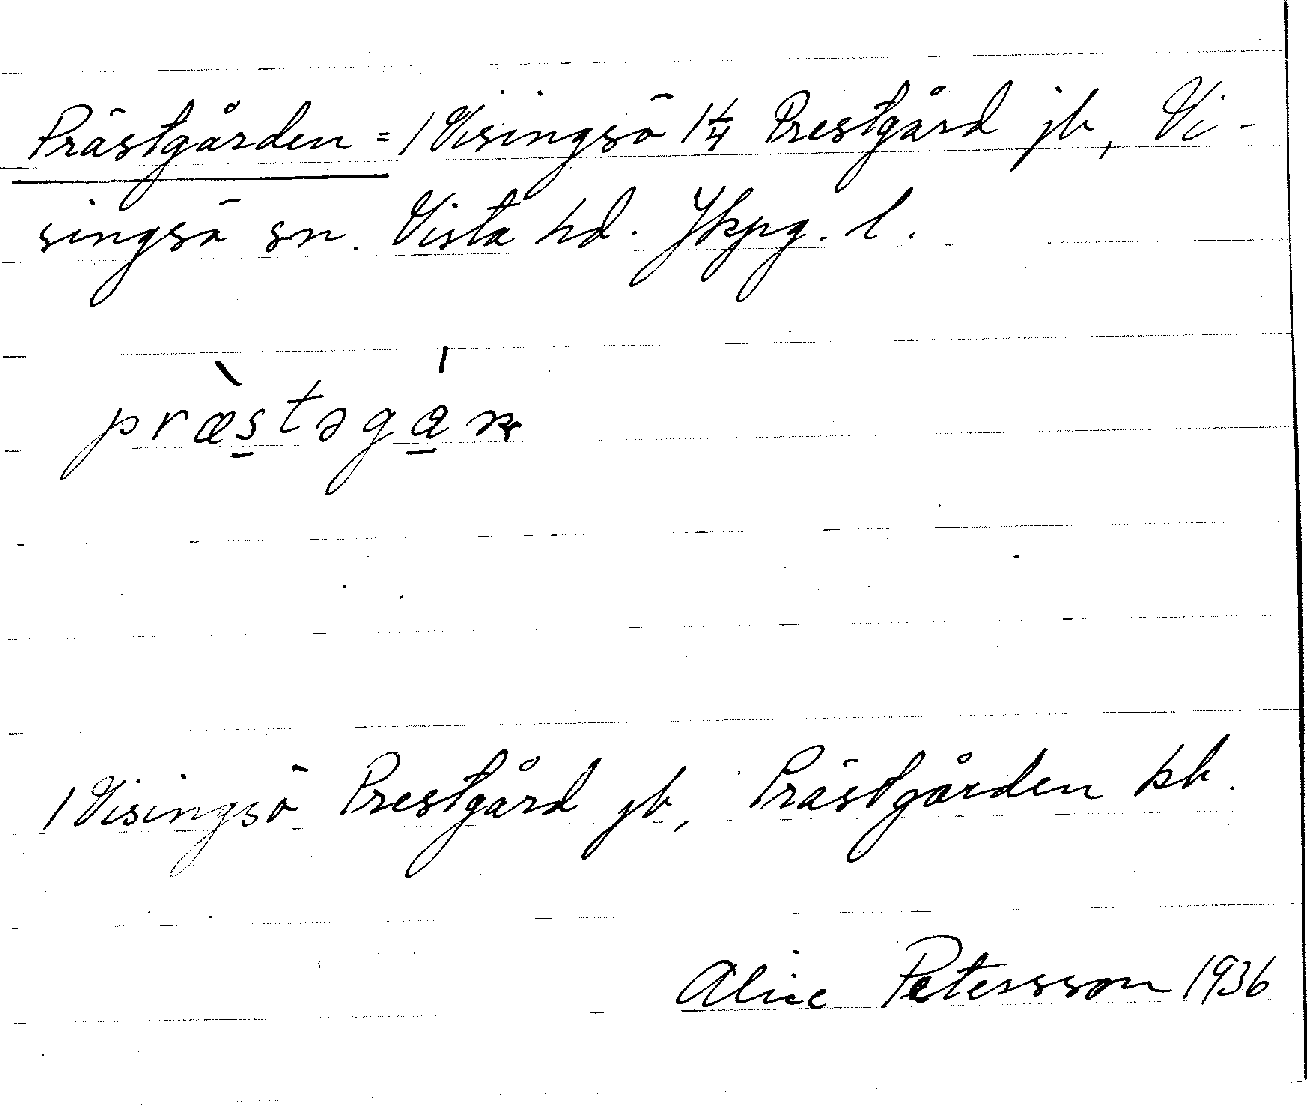 Prästgården = 1 Visingsö 1 1/4 Prestgård jb, Vi-
singsö sn. Vista hd. Jkpg. l.
præ̀stəgán
1 Visingsö Prestgård jb, Prästgården kb.
Alice Petersson 1936